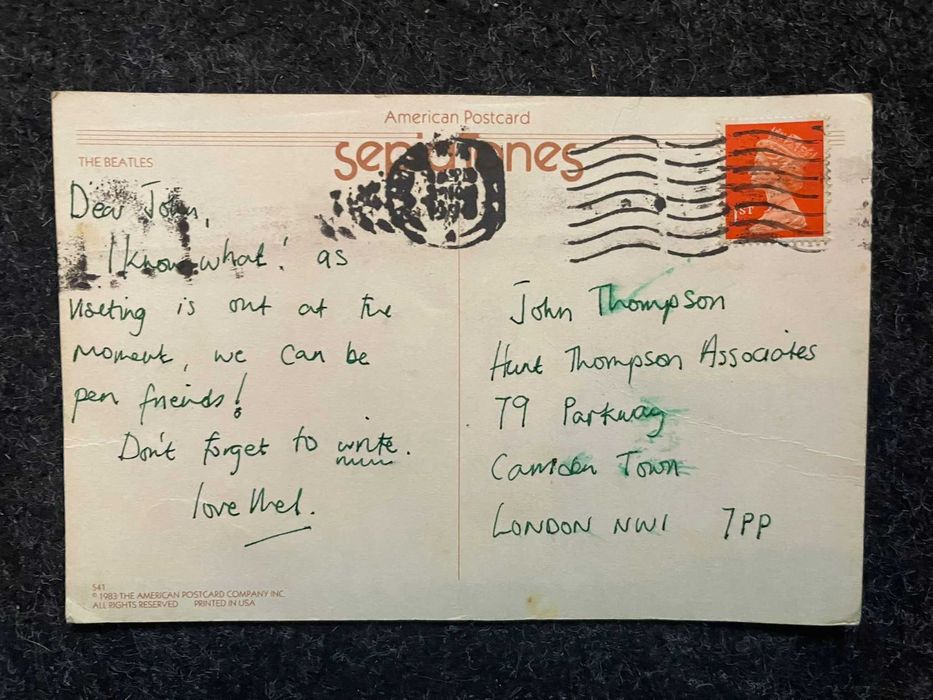 American Postcard
sepiaTones
THE BEATLES
1ST
Dear John,
I know what! as
visiting is out at the
moment, we can be
pen friends!
Don't forget to write.
love Mel.
John Thompson
Hunt Thompson Associates
79 Parkway
Camden Town
LONDON NW1 7PP
541
© 1983 THE AMERICAN POSTCARD COMPANY INC.
ALL RIGHTS RESERVED PRINTED IN USA